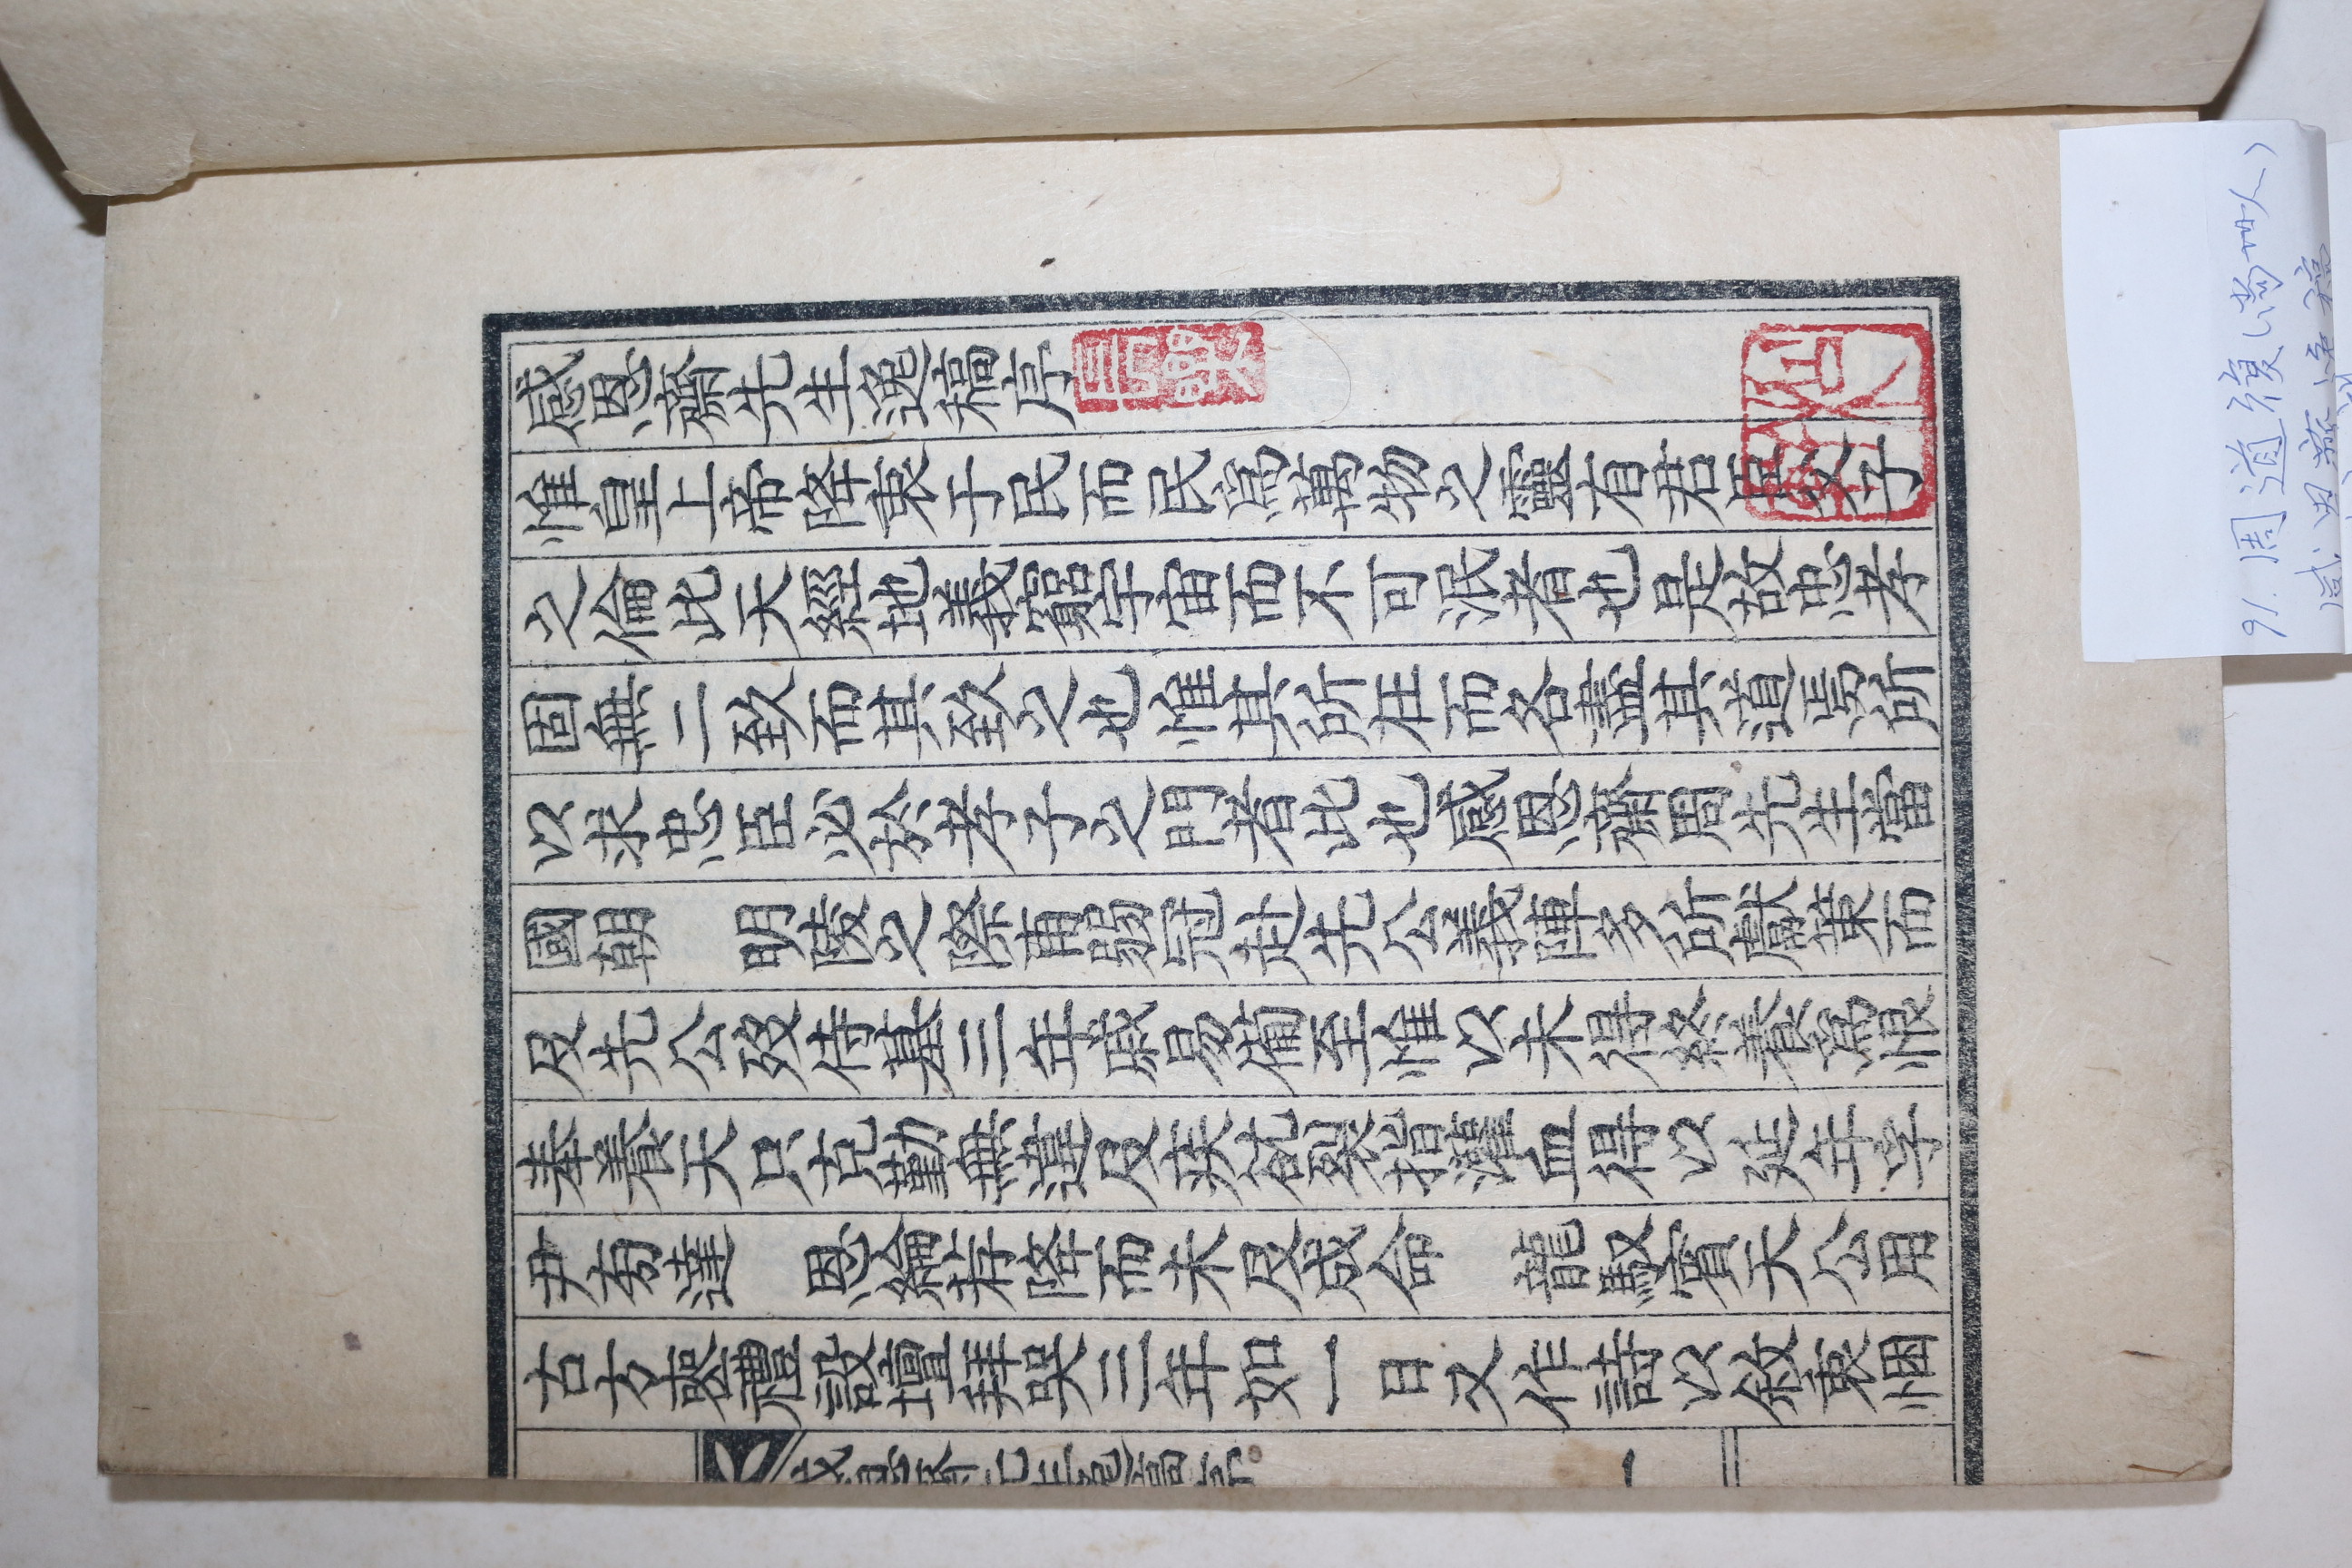 感恩齋先生逸稿序
惟皇上帝降衷于民而民爲萬物之靈有君臣父子
之倫此天經地義窮宇宙而不可泯者也是故忠孝
固無二致而其致之也惟其所在而各盡其道焉所
以求忠臣必於孝子之門者此也感恩齋周先生當
國朝 明陵之際甫勝冠赴先公義陣多所獻策而
及先公歿侍墓三年哀易備至惟以未得終養爲恨
奉養天只克勤無違及疾危裂指灌血得以延年宰
尹剡達 恩綸荐降而未及成命 龍馭賓天公用
古方喪禮設壇拜哭三年如一日又作詩以敍衷悃
感恩齋先生逸稿序 一
91. 周道復
感恩齋逸稿